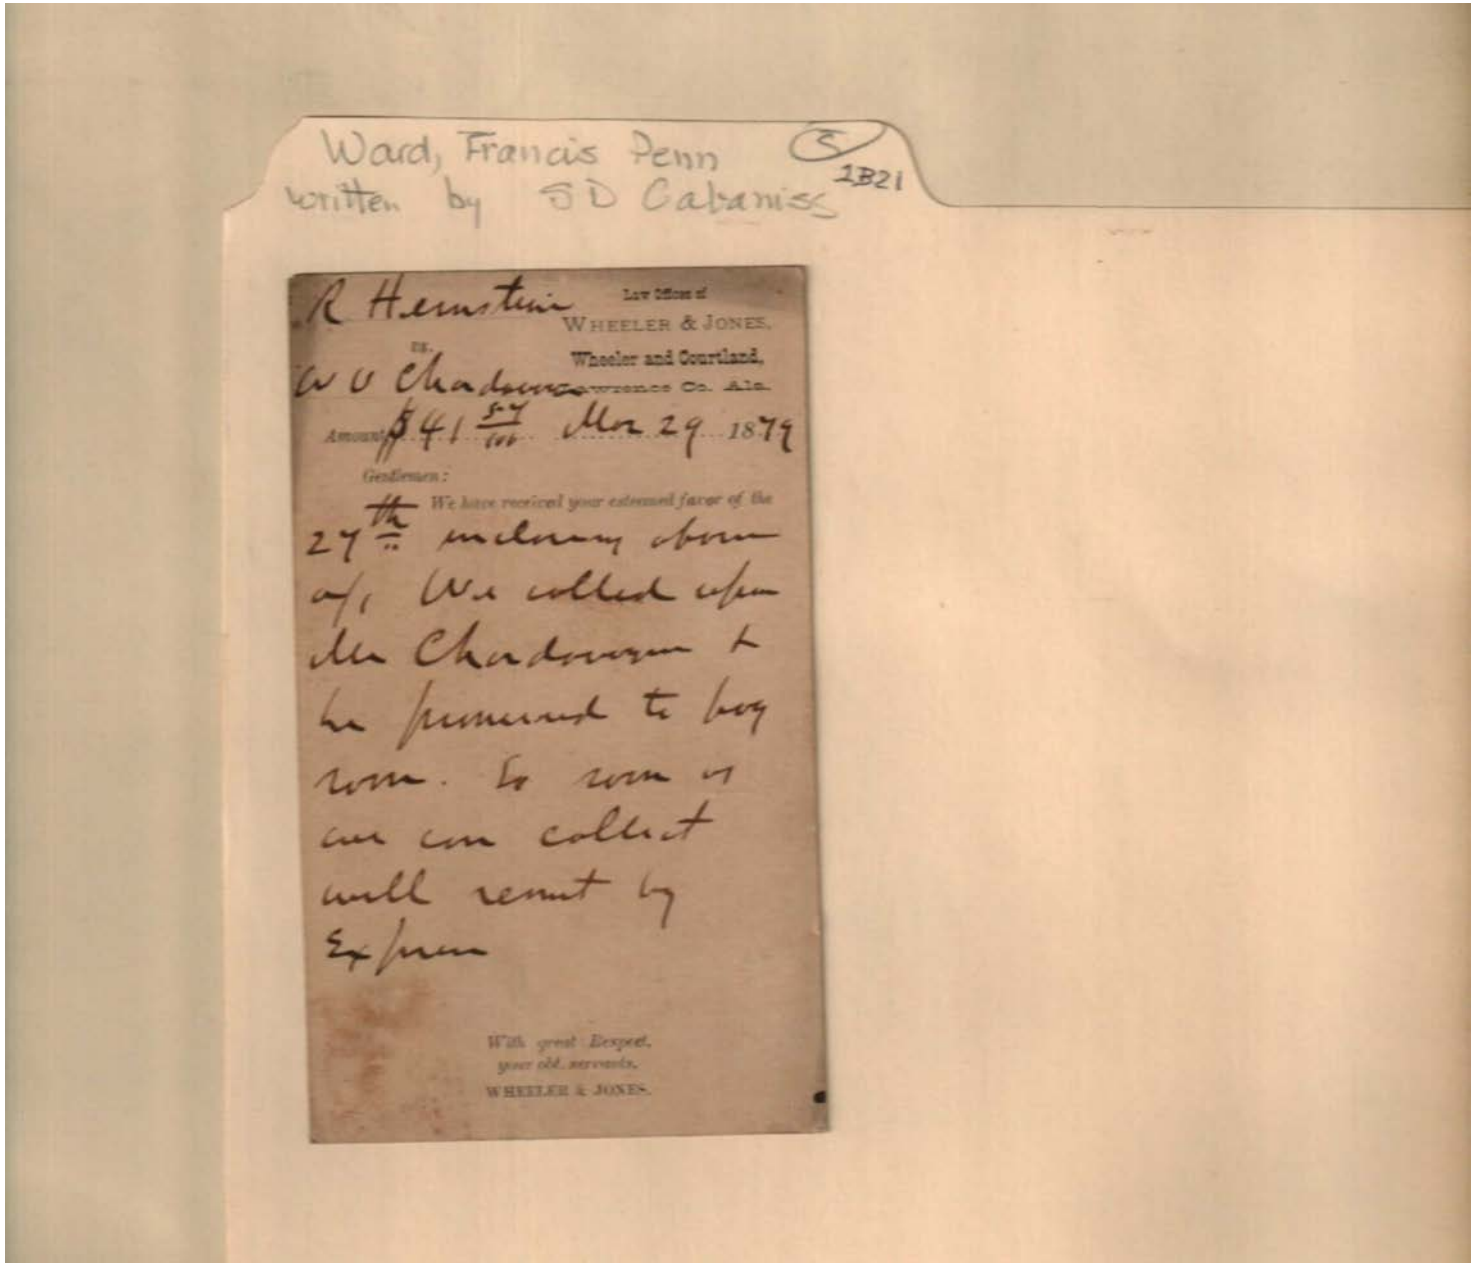 Ward, Francis Penn S
1B21
written by S D Cabaniss
R Hernstein
Law Offices of
WHEELER & JONES,
vs.
Wheeler and Courtland,
W V Chardavoyne
Lawrence Co. Ala.
Amount $41 57/100 Mar 29 1879
Gentlemen:
We have received your esteemed favor of the
27th inclosing above
a/c We called upon
Mr Chardavoyne &
he promised to pay
soon. So soon as
we can collect
will remit by
Express
With great Respect,
your obt. servants,
WHEELER & JONES.